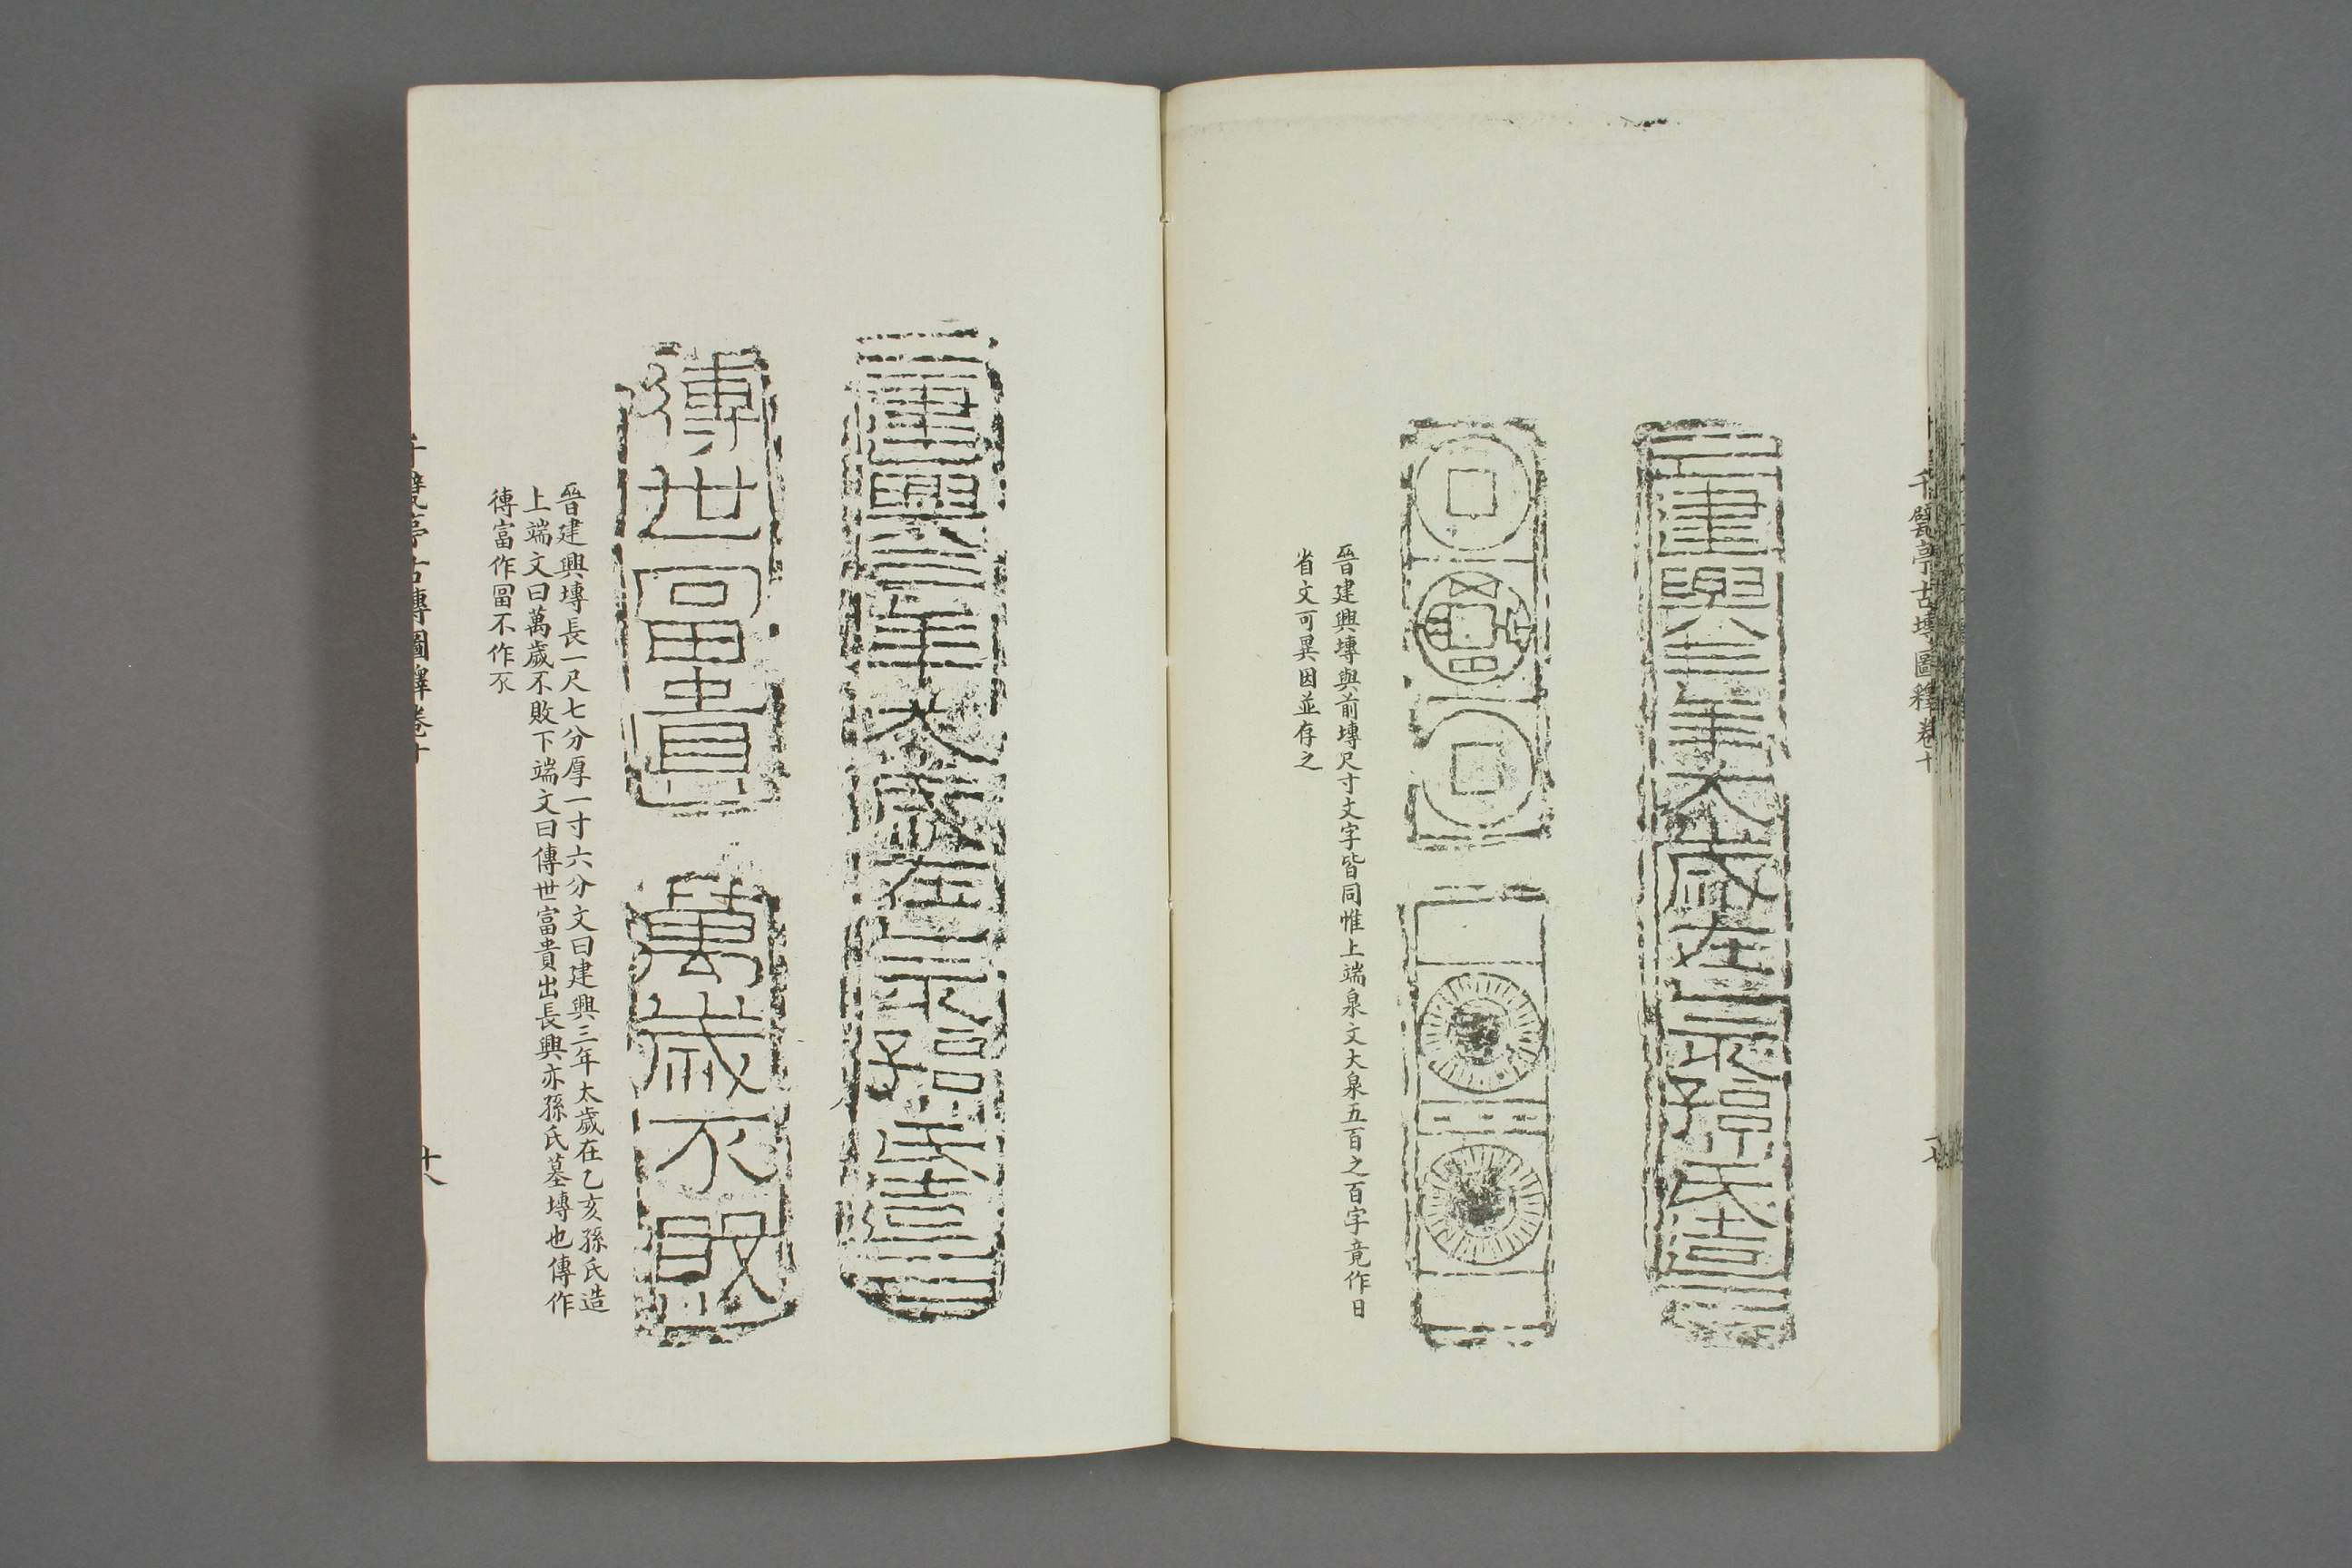 千甓亭古塼圖釋卷十
建興三年太歲在乙亥孫氏造
晉建興塼與前塼尺寸文字皆同惟上端泉文大泉五百之百字竟作日
省文可異因並存之
建興三年太歲在乙亥孫氏造
傳世冨貴
萬歲不敗
晉建興塼長一尺七分厚一寸六分文曰建興三年太歲在乙亥孫氏造
上端文曰萬歲不敗下端文曰傳世富貴出長興亦孫氏墓塼也傳作
傅富作冨不作不
千甓亭古塼圖釋卷十
十八